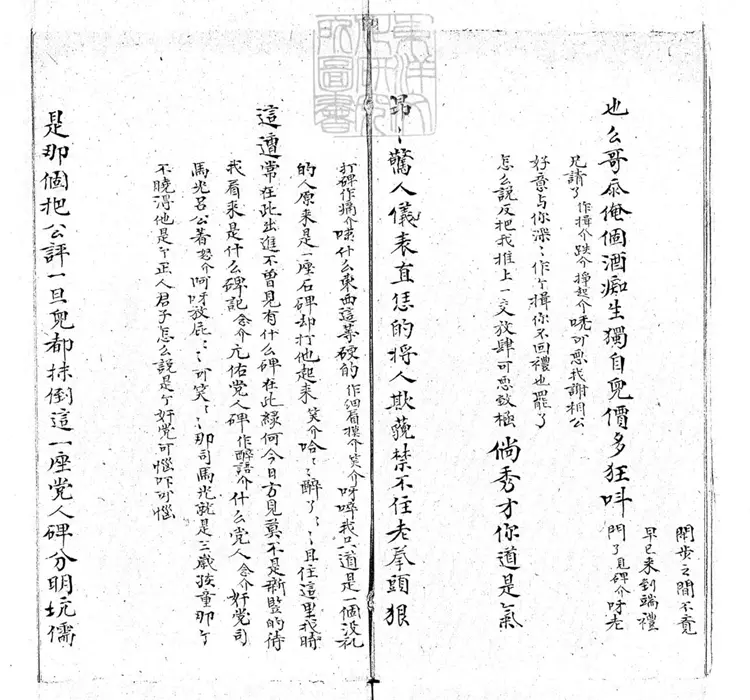 閒步之間不覔
早已来到端禮
也么哥忝俺個酒痴生獨自兜價多狂呌 門了見碑介呀老
兄請了作揖介跌介掙起介唗可恶我謝相公
好意与你深〻作个揖你不回禮也罷了
怎么説反把我推上一交放肆可恶致極 倘秀才你道是氣
昻〻驚人儀表直恁的将人欺藐禁不住老拳頭狠
打碑作痛介 什么東西這等硬的作细看摸介笑介呀啐我只道是一個没礼
的人原来是一座石碑却打他起来笑介哈〻〻醉了〻〻且住這里我時
這遭常在此出進不曽見有什么碑在此緑何今日方見莫不是新竪的待
我看来是什么碑記念介元佑党人碑作醉語介什么党人念介奸党司
馬光呂公着怒介呵呀放屁〻〻可笑〻〻那司馬光就是三歳孩童那个
不曉得他是个正人君子怎么説是个奸党可惱吓可惱
是那個把公評一旦兜都抹倒這一座党人碑分明坑儒
東洋文化研究所圖書